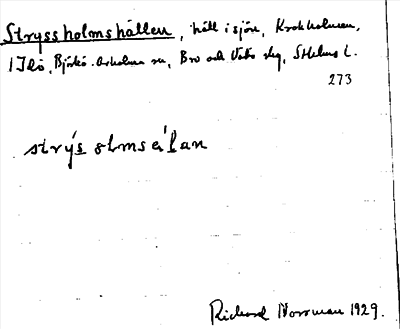 Stryssholmshällen, häll i sjön, Krokholmen,
1 Ilö, Björkö-Arholma sn, Bro och Vätö skg, Sthlms l.
273
strýs olmse`lan
Richard Norrman 1929.